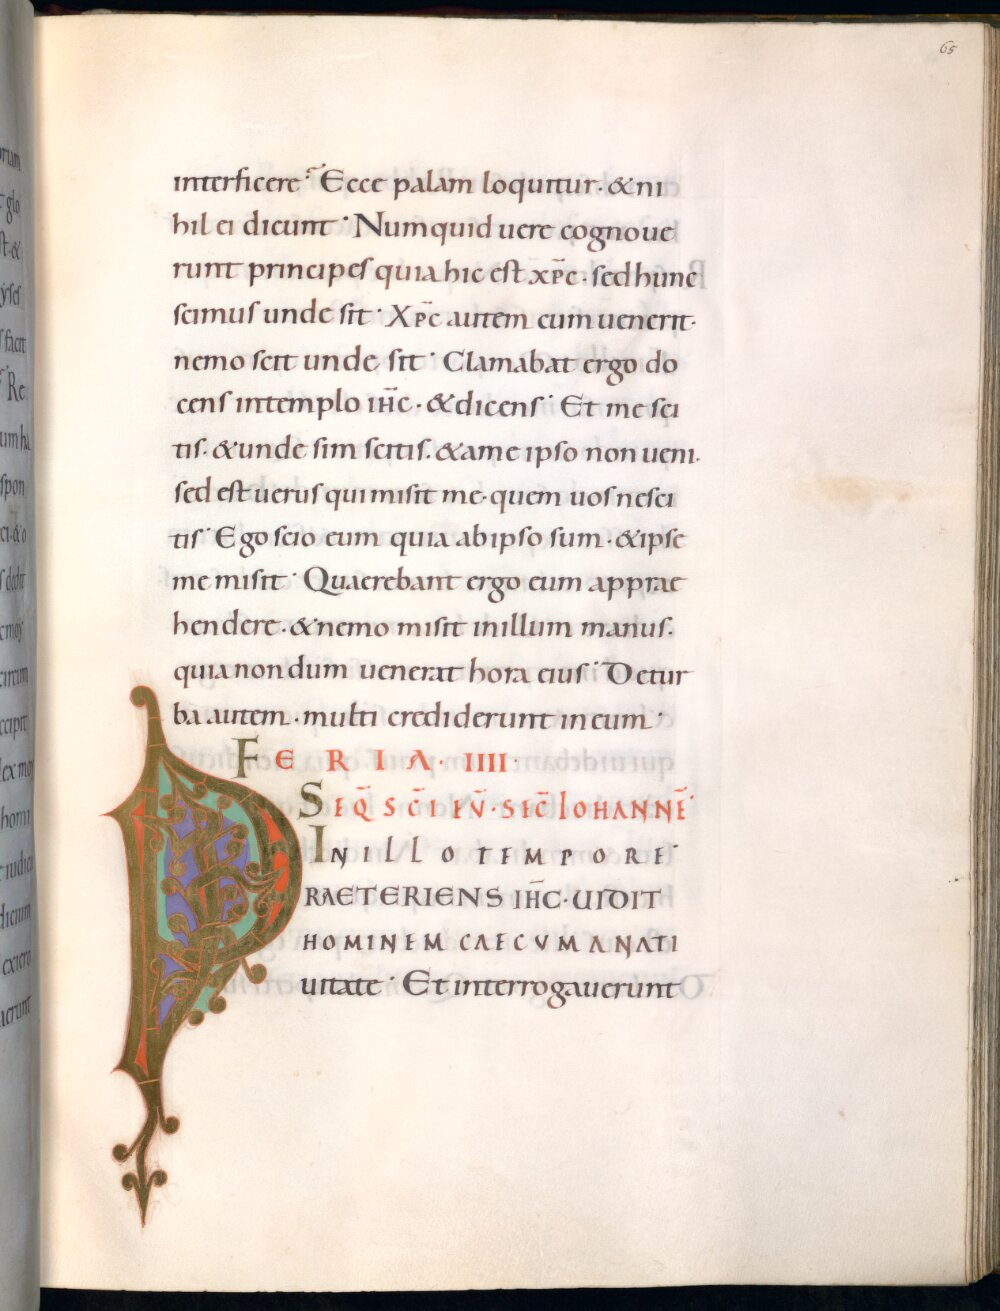 65
interficere? Ecce palam loquitur · & ni
hil ei dicunt · Numquid uere cognoue
runt principes quia hic est xp̄c · sed hunc
scimus unde sit · Xp̄c autem cum uenerit ·
nemo scit unde sit · Clamabat ergo do
cens in templo ih̄c · & dicens · Et me sci
tis · & unde sim scitis · & a me ipso non ueni ·
sed est uerus qui misit me · quem uos nesci
tis · Ego scio eum quia ab ipso sum · & ipse
me misit · Quaerebant ergo eum apprae
hendere · & nemo misit in illum manus ·
quia nondum uenerat hora eius · De tur
ba autem · multi crediderunt in eum ·
FERIA · IIII ·
SEQ̄ SC̄I EV̄ · SEC̄ IOHANNĒ ·
IN ILLO TEMPORE ·
PRAETERIENS IH̄C · UIDIT
HOMINEM CAECVM A NATI
uitate · Et interrogauerunt